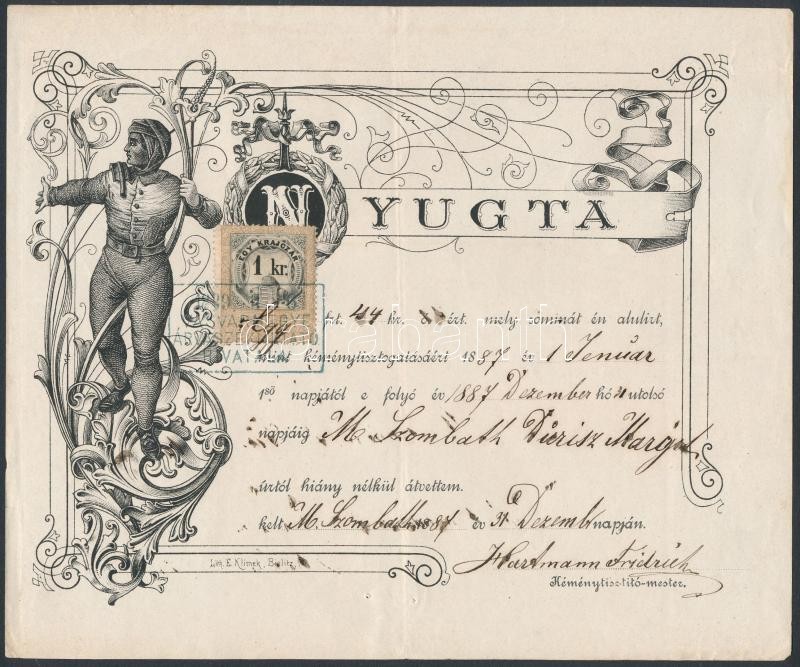 NYUGTA
EGY KRAJCZÁR
1 kr.
frt. 44 kr. ért. mely sommát én alulirt,
mint kéménytisztogatásáért 1887 év 1 Jenuar
1ső napjától e folyó év 1887 Dezember hó 31 utolsó
napjáig M. Szombath Durisz Margit
úrtól hiány nélkül átvettem.
kelt M. Szombath 1887 év 31 Dezemb napján.
Hartmann Fridrich
Kéménytisztító-mester.
Lith. E. Klimek, Beslitz.
darabanth